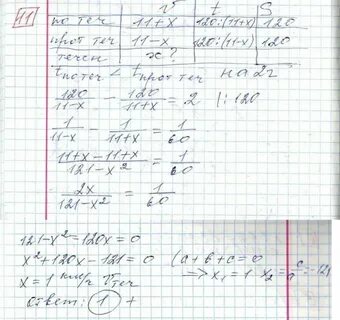 11
v t S
по теч 11+x 120:(11+x) 120
прот теч 11-x 120:(11-x) 120
течен x?
t по теч < t прот теч на 2г
120/(11-x) - 120/(11+x) = 2 |:120
1/(11-x) - 1/(11+x) = 1/60
(11+x-11+x)/(121-x²) = 1/60
2x/(121-x²) = 1/60
121-x²-120x=0
x²+120x-121=0 (a+b+c=0)
x=1 км/г v теч => x₁=1 x₂=c/a=-121
ответ: 1 +